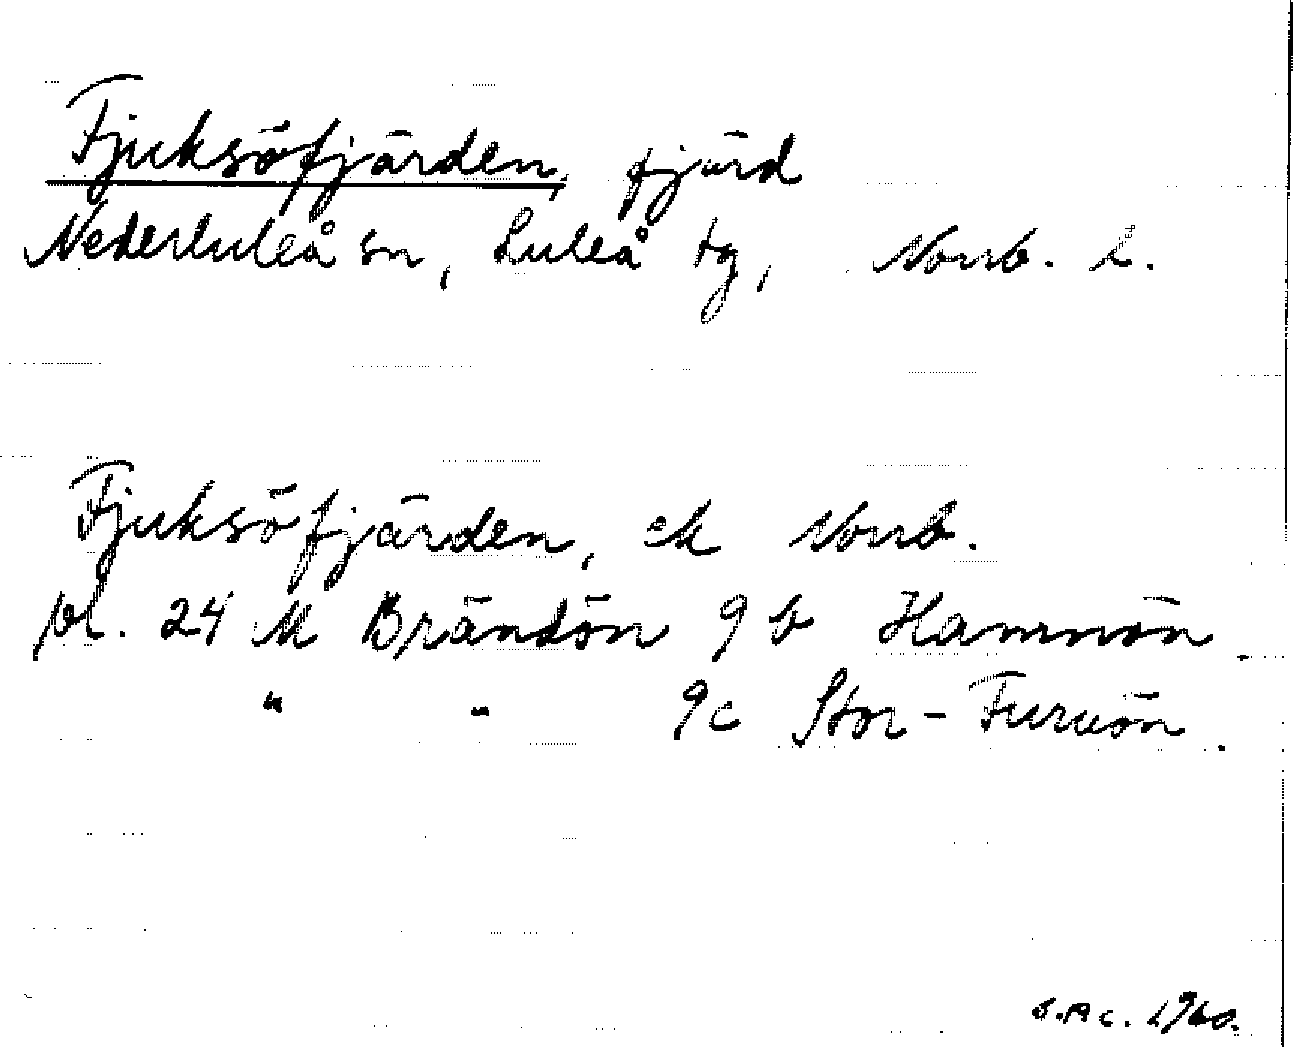 Fjuksöfjärden, fjärd
Nederluleå sn, Luleå tg, Norrb. l.
Fjuksöfjärden, ek Norrb.
bl. 24 M Brändön 9 b Hamnön.
" " 9c Stor-Furuön.
1960.